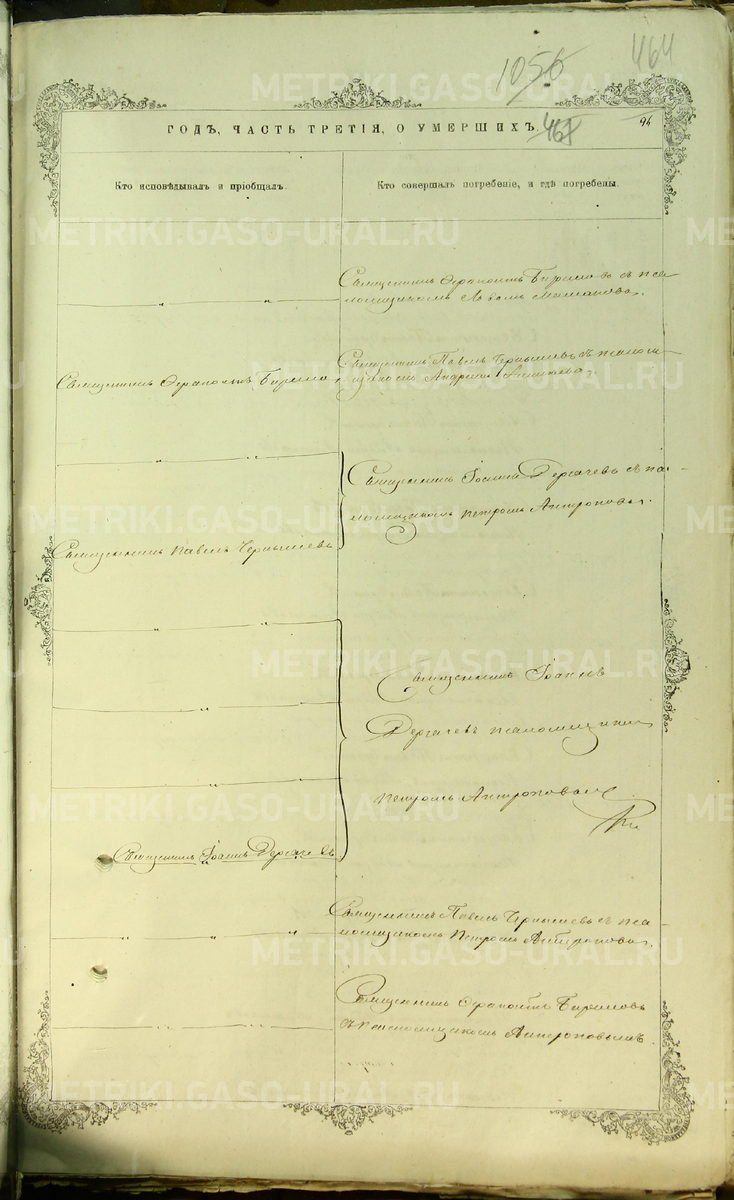 1056
464
ГОДЪ, ЧАСТЬ ТРЕТІЯ, О УМЕРШИХЪ.
94
Кто исповѣдывалъ и пріобщалъ.
Кто совершалъ погребеніе, и гдѣ погребены.
Священникъ Ѳерапонтъ Бирюковъ съ пса-
ломщикомъ
Священникъ Ѳерапонтъ
Священникъ Павелъ Чернышевъ съ псаломщи-
комъ Андреемъ
Священникъ Іоаннъ Дергачевъ съ пса-
ломщикомъ Петромъ Антроповымъ.
Священникъ Павелъ Чернышевъ
Священникъ Іоаннъ
Дергачевъ псаломщикомъ
Петромъ Антроповымъ
Священникъ Іоаннъ Дергачевъ
Священникъ Павелъ Чернышевъ съ пса-
ломщикомъ Петромъ Антроповымъ.
Священникъ Ѳерапонтъ Бирюковъ
съ псаломщикомъ Антроповымъ.
METRIKI.GASO-URAL.RU